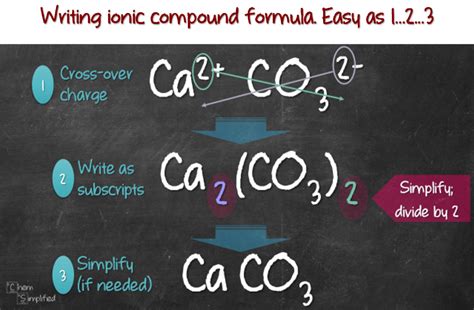 Writing ionic compound formula. Easy as 1...2...3
1 Cross-over charge
Ca²⁺ CO₃²⁻
2 Write as subscripts
Ca₂(CO₃)₂
Simplify; divide by 2
3 Simplify (if needed)
Ca CO₃
Chem
Simplified